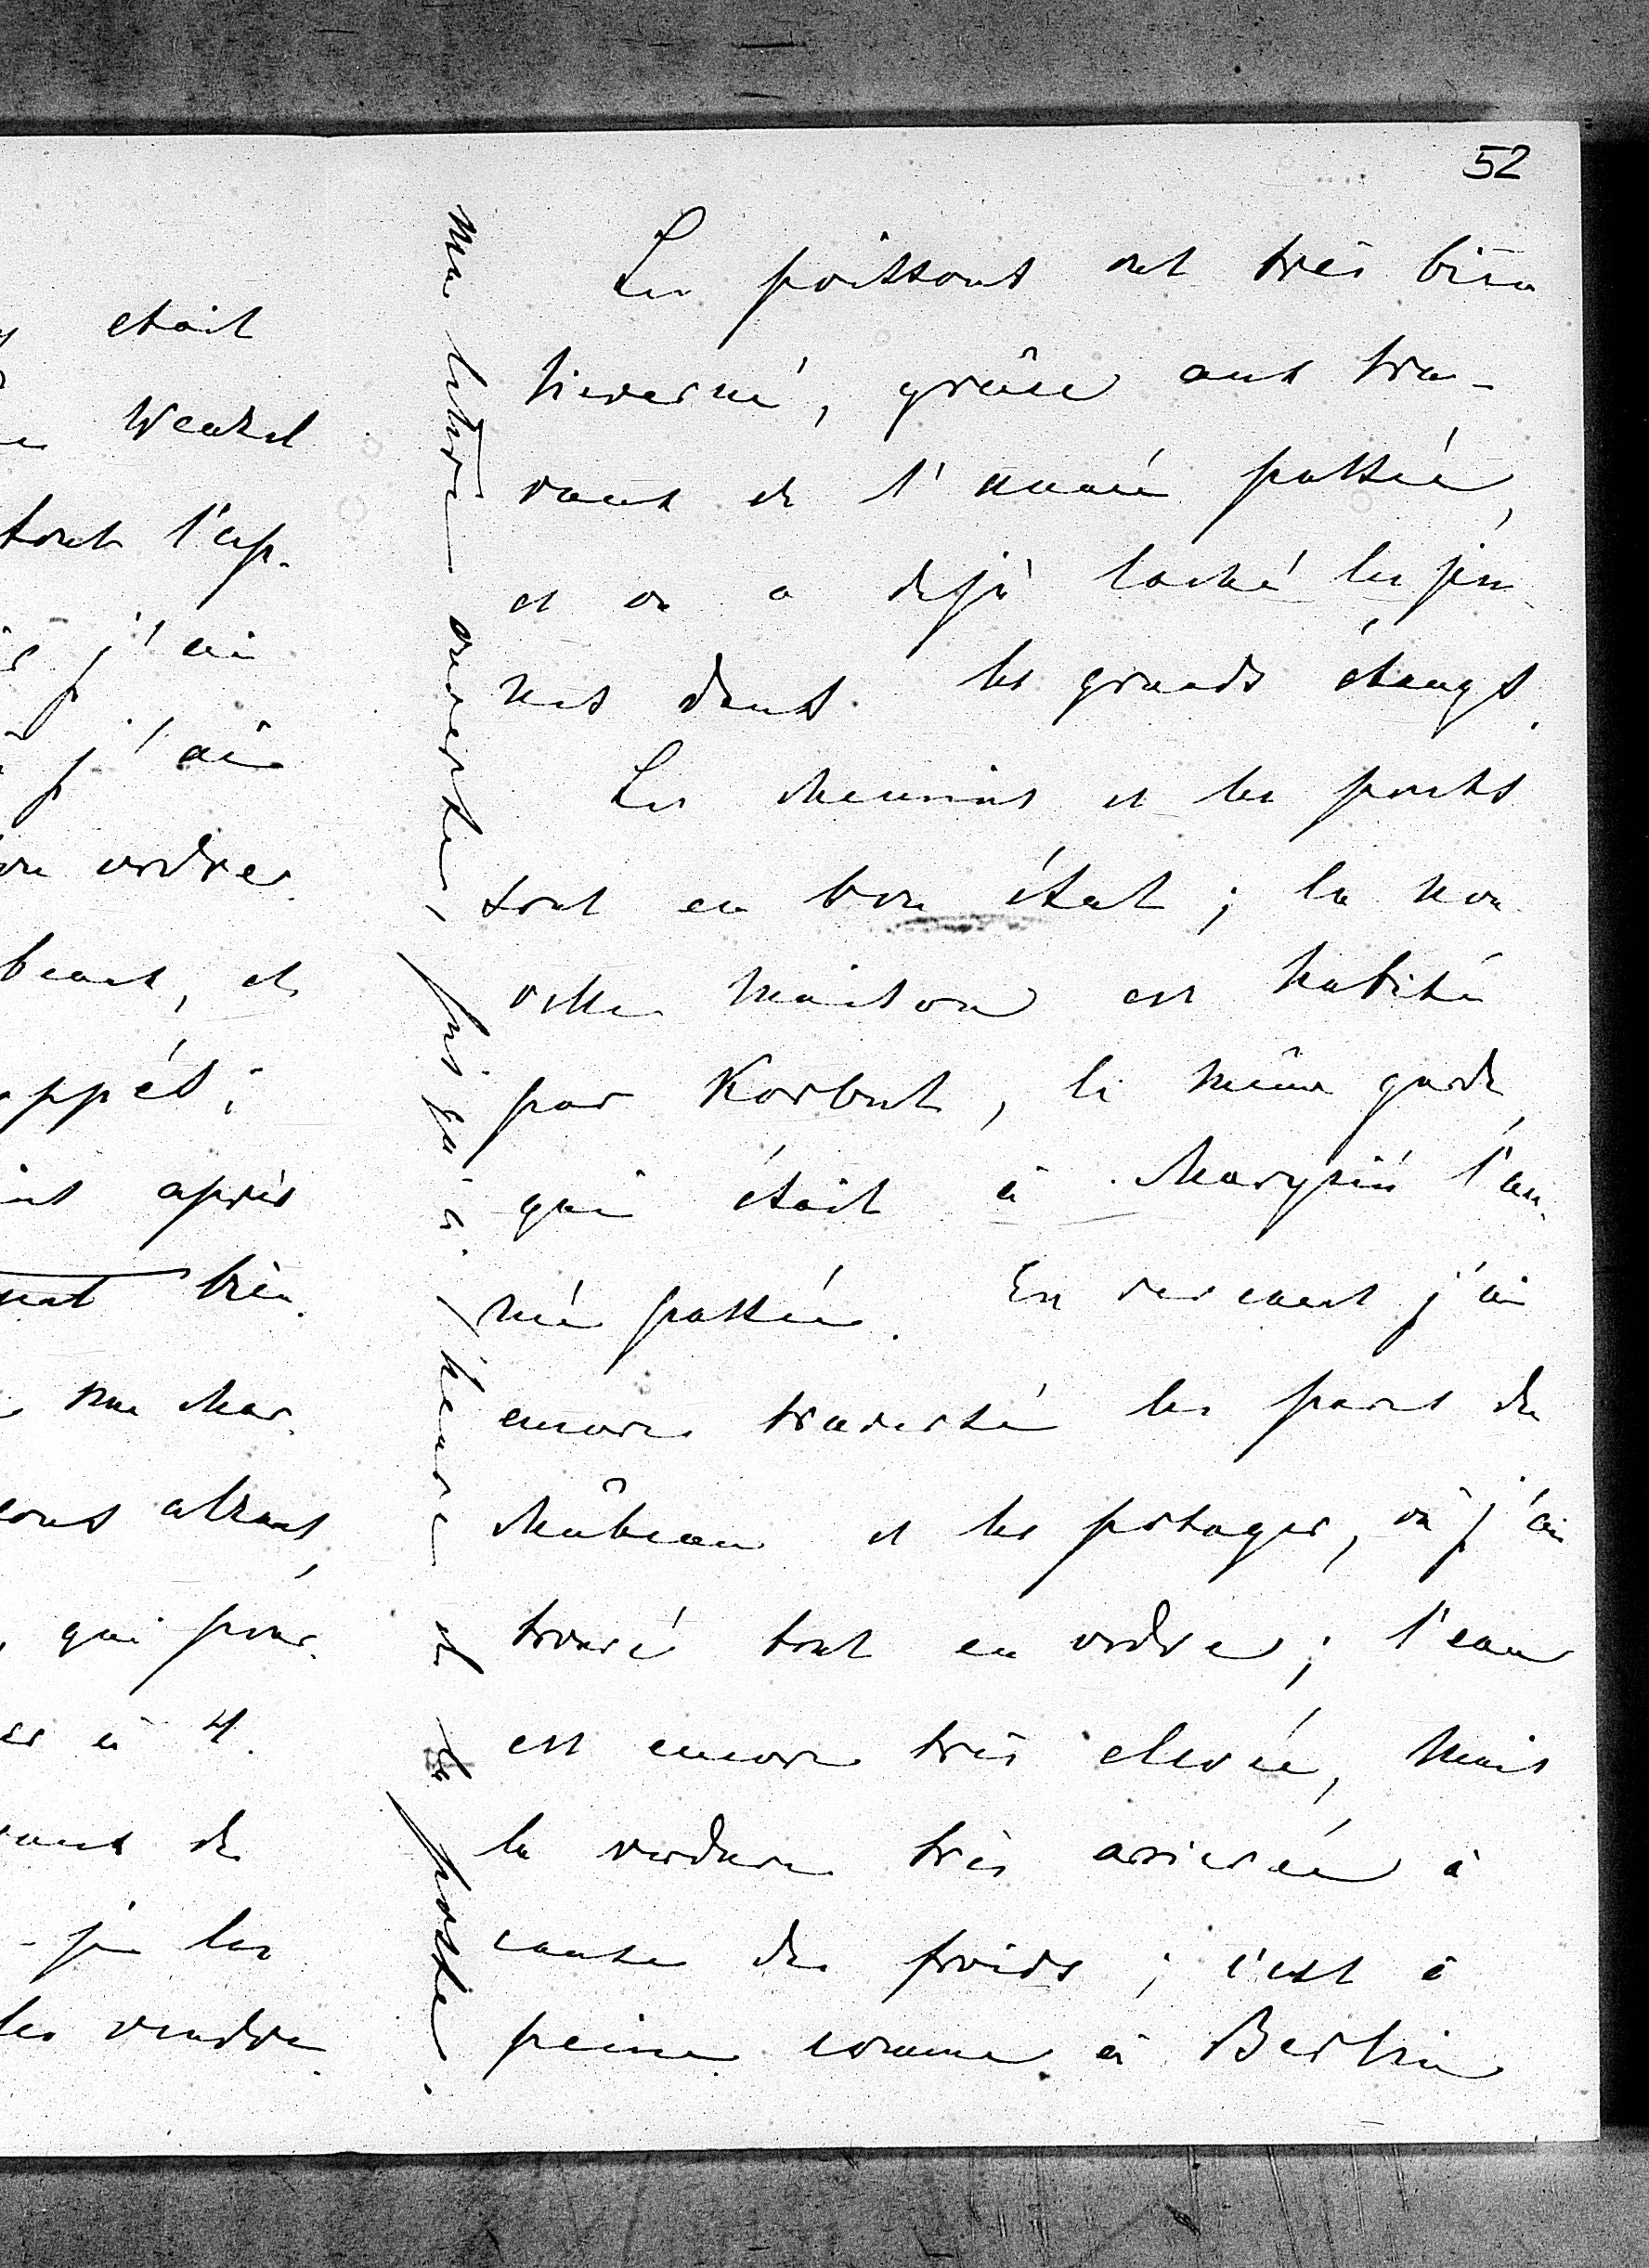 52
Les poissons ont très bien
hiverné, grâce aux tra-
vaux de l'année passée,
et on a déjà laché les jeu-
nes dans les grands étangs.
Les chemins et les ponts
sont en bon état; la nou-
velle maison est habitée
par Korbut, le même garde,
qui était à Marysin l'an-
née passée. En revenant j'ai
encore traversé les parcs du
château et les potager, où j'ai
trouvé tout en ordre; l'eau
est encore très elevée, mais
la verdure très arrierée à
cause des froids; c'est à
peine comme à Berlin
ma lettre ouverte, jusqu'à l'heure de la poste.
etait
Wenzel
tout l'ap-
j'ai
j'ai
ordre.
et
après
bien.
me
qui pour
à 4.
de
les
vendre.